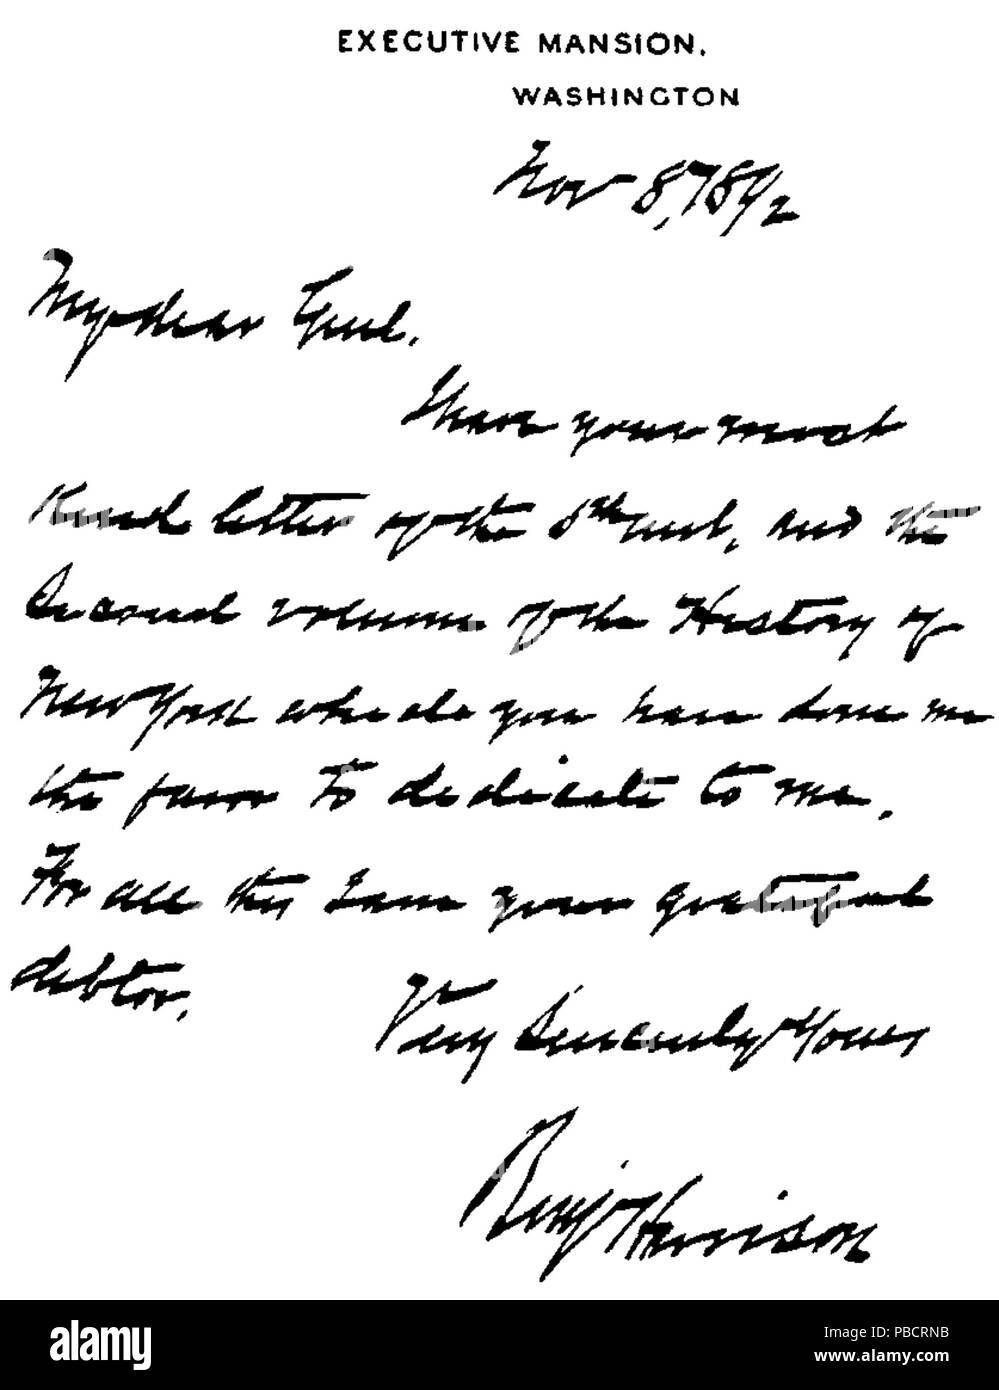 EXECUTIVE MANSION.
WASHINGTON
Nov 8, 1892
My dear Genl.
I have your most
kind letter of the 5th inst, and the
Second volume of the History of
New York which you have done me
the favor to dedicate to me.
For all this I am your grateful
debtor.
Very Sincerely Yours
Benj Harrison
a
alamy
Image ID: PBCRNB
www.alamy.com